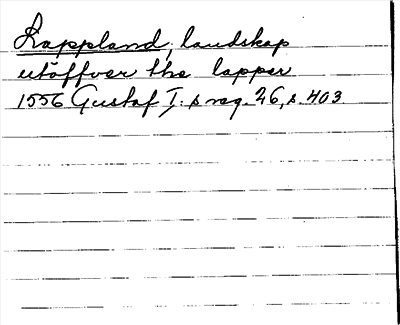 Lappland, landskap
utöffver the lapper
1556 Gustaf I:s reg. 26, s. 403